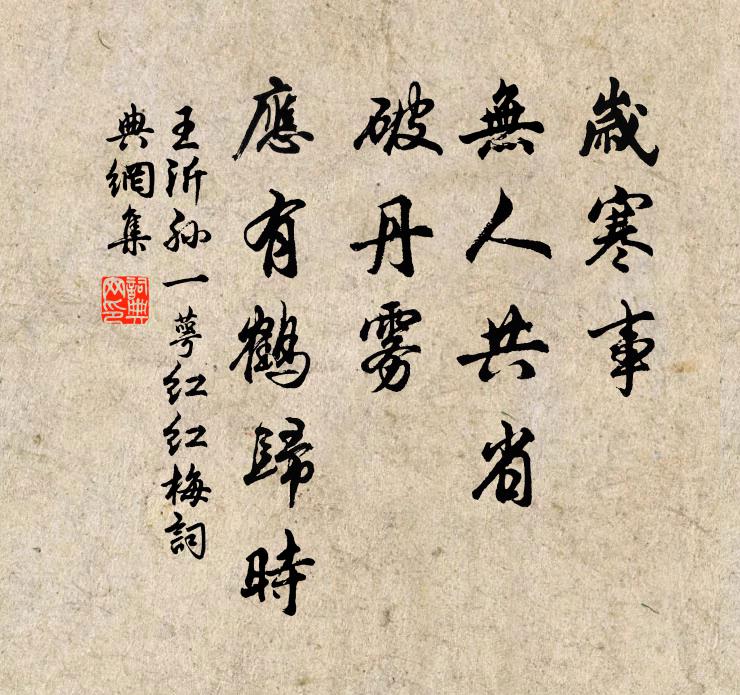 歲寒事
無人共省
破丹雾
應有鶴歸時
王沂孫一萼红红梅詞
典網集
詞典網印